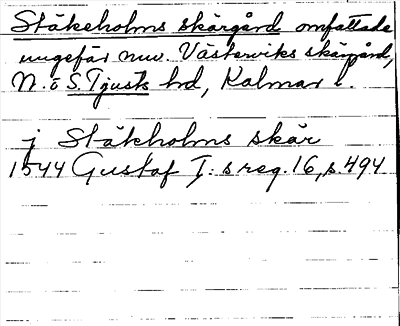 Stäkeholms skärgård omfattade
ungefär nuv. Västerviks skärgård,
N. o S. Tjusts hd, Kalmar l.
j Stäkholms skär
1544 Gustaf I: s reg. 16, s. 494